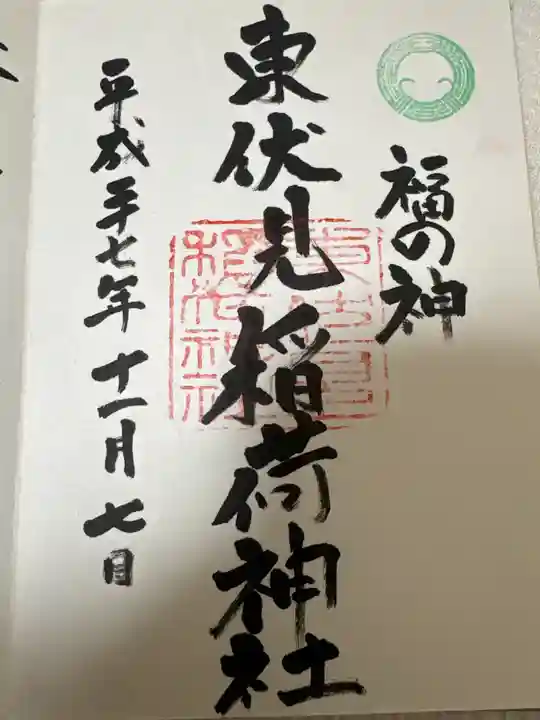 福の神
東伏見稲荷神社
平成二十七年十一月七日
東伏見
稲荷神社